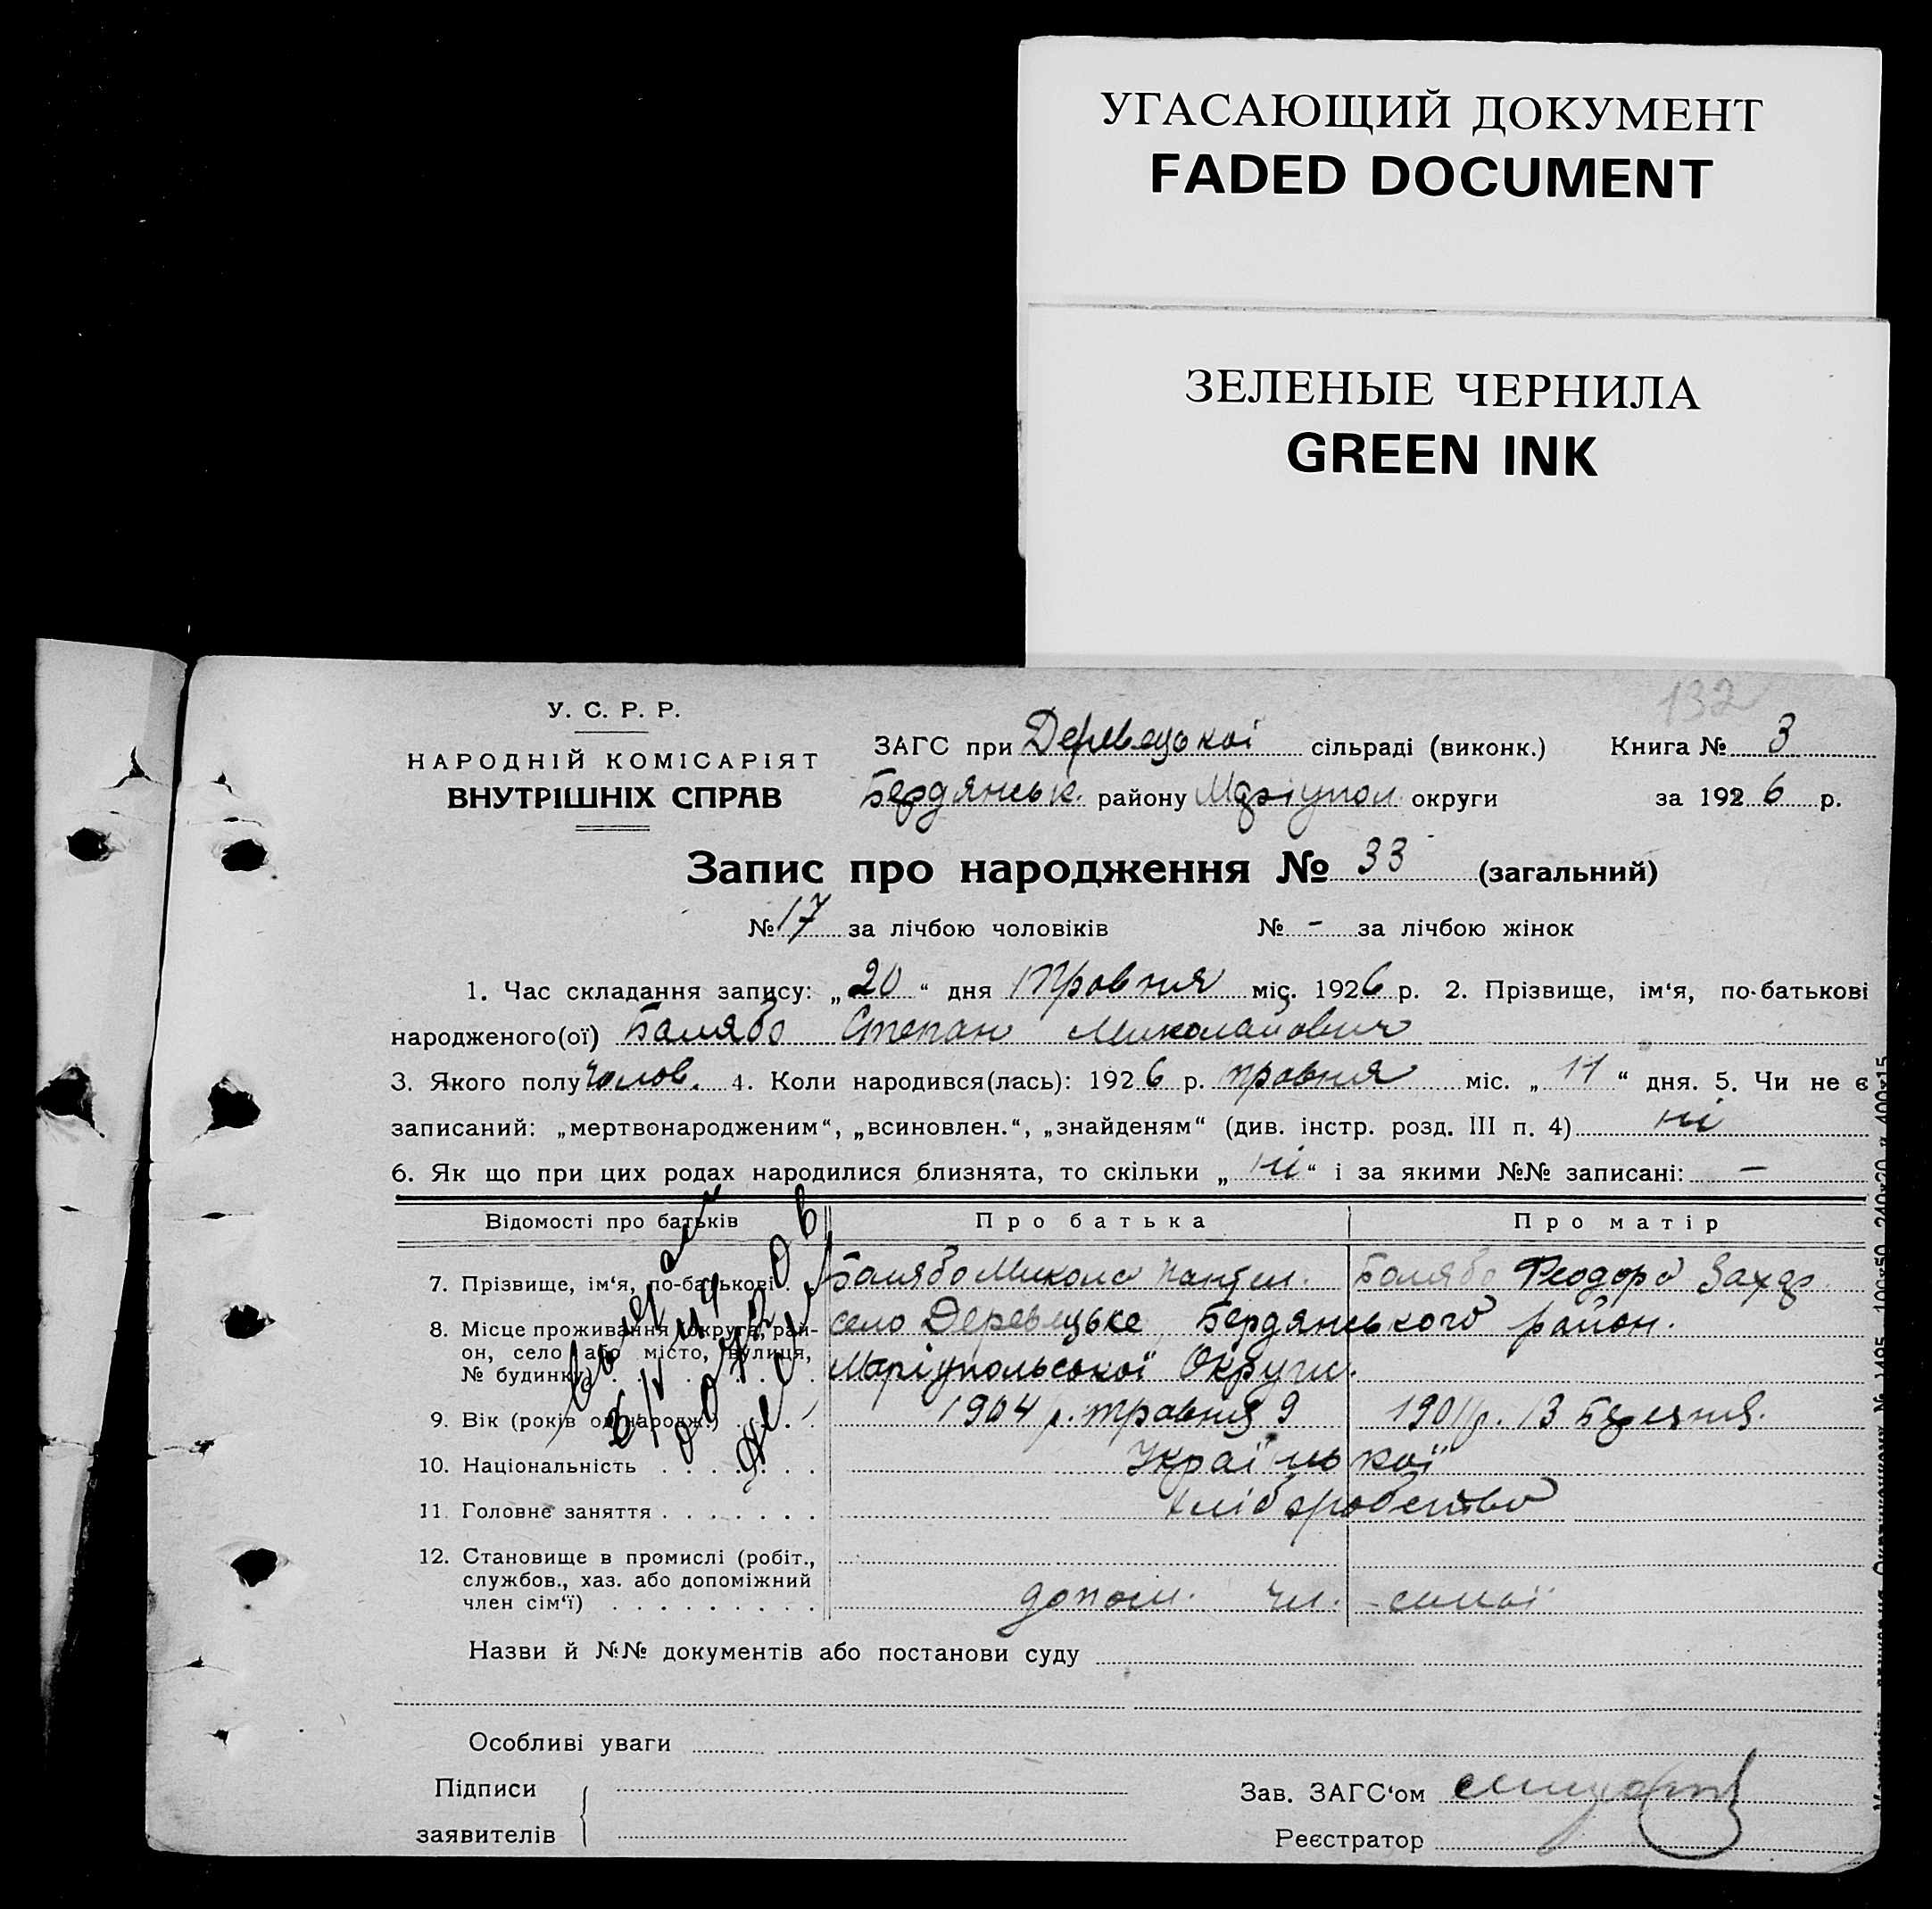 УГАСАЮЩИЙ ДОКУМЕНТ
FADED DOCUMENT
ЗЕЛЕНЫЕ ЧЕРНИЛА
GREEN INK
132
У. С. Р. Р.
НАРОДНІЙ КОМІСАРІЯТ
ВНУТРІШНІХ СПРАВ
ЗАГС при Деревецькоі сільраді (виконк.) Книга № 3
Бердянськ. району Маріупол. округи за 1926 р.
Запис про народження № 33 (загальний)
№ 17 за лічбою чоловіків № - за лічбою жінок
1. Час складання запису: „20“ дня Травня міс. 1926 р. 2. Прізвище, ім‘я, по-батькові
народженого(ої) Балябо Степан Миколайович
3. Якого полу чолов. 4. Коли народився(лась): 1926 р. травня міс. „11“ дня. 5. Чи не є
записаний: „мертвонародженим“, „всиновлен.“, „знайденям“ (див. інстр. розд. III п. 4) ні
6. Як що при цих родах народилися близнята, то скільки „ні“ і за якими №№ записані: —
Відомості про батьків Про батька Про матір
7. Прізвище, ім‘я, по-батькові Балябо Микола Пантел. Балябо Феодора Захар.
8. Місце проживання (округа, рай-
он, село або місто, вулиця,
№ будинку) село Деревецьке Бердянського район.
Маріупольської Округи.
9. Вік (років од народж.) 1904 р. травня 9 1901 р. 13 Березня.
10. Національність Української
11. Головне заняття хліборобство
12. Становище в промислі (робіт.,
службов., хаз. або допоміжний
член сім‘ї) допом. чл. сим'ї
Назви й №№ документів або постанови суду
Особливі уваги
Підписи
заявителів
Зав. ЗАГС‘ом
Реєстратор